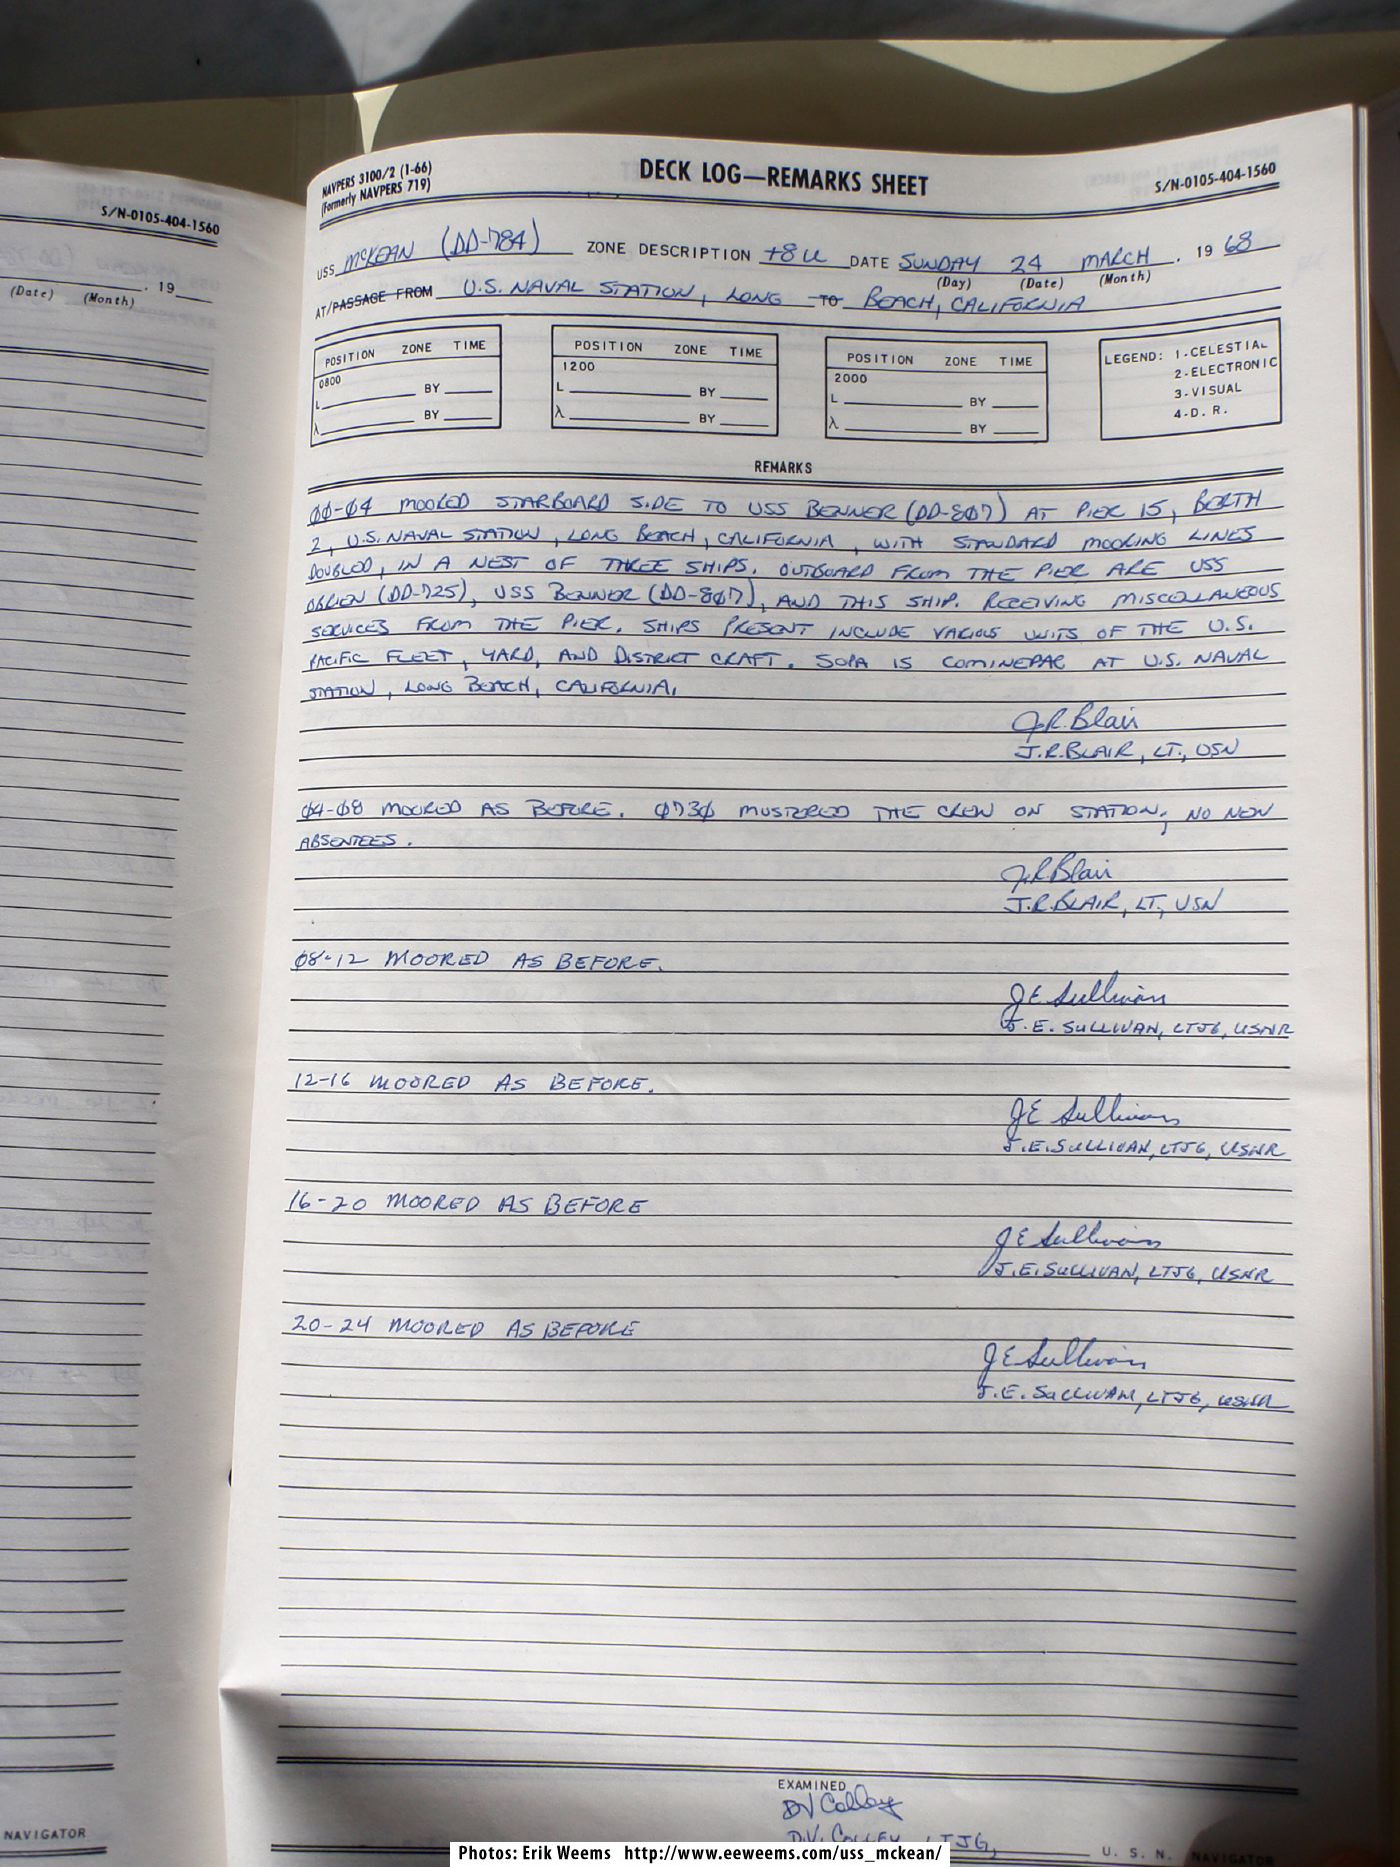 S/N-0105-404-1560
. 19
(Date) (Month)
NAVIGATOR
NAVPERS 3100/2 (1-66)
(Formerly NAVPERS 719)
DECK LOG—REMARKS SHEET
S/N-0105-404-1560
USS McKEAN (DD-784) ZONE DESCRIPTION +8U DATE SUNDAY 24 MARCH . 19 68
(Day) (Date) (Month)
AT/PASSAGE FROM U.S. NAVAL STATION, LONG TO BEACH, CALIFORNIA
POSITION ZONE TIME
0800
L BY
λ BY
POSITION ZONE TIME
1200
L BY
λ BY
POSITION ZONE TIME
2000
L BY
λ BY
LEGEND: 1-CELESTIAL
2-ELECTRONIC
3-VISUAL
4-D. R.
REMARKS
00-04 MOORED STARBOARD SIDE TO USS BENNER (DD-807) AT PIER 15, BERTH
2, U.S. NAVAL STATION, LONG BEACH, CALIFORNIA, WITH STANDARD MOORING LINES
DOUBLED, IN A NEST OF THREE SHIPS. OUTBOARD FROM THE PIER ARE USS
OBRIEN (DD-725), USS BENNER (DD-807), AND THIS SHIP. RECEIVING MISCELLANEOUS
SERVICES FROM THE PIER. SHIPS PRESENT INCLUDE VARIOUS UNITS OF THE U.S.
PACIFIC FLEET, YARD, AND DISTRICT CRAFT. SOPA IS COMINEPAC AT U.S. NAVAL
STATION, LONG BEACH, CALIFORNIA.
J.R. Blair
J.R. BLAIR, LT., USN
04-08 MOORED AS BEFORE. 0730 MUSTERED THE CREW ON STATION; NO NEW
ABSENTEES.
J.R. Blair
J.R. BLAIR, LT., USN
08-12 MOORED AS BEFORE.
JE Sullivan
J. E. SULLIVAN, LTJG, USNR
12-16 MOORED AS BEFORE.
JE Sullivan
J. E. SULLIVAN, LTJG, USNR
16-20 MOORED AS BEFORE
JE Sullivan
J. E. SULLIVAN, LTJG, USNR
20-24 MOORED AS BEFORE
JE Sullivan
J. E. SULLIVAN, LTJG, USNR
EXAMINED
DV Colley
D.V. COLLEY, LTJG, U. S. N. NAVIGATOR
Photos: Erik Weems http://www.eeweems.com/uss_mckean/